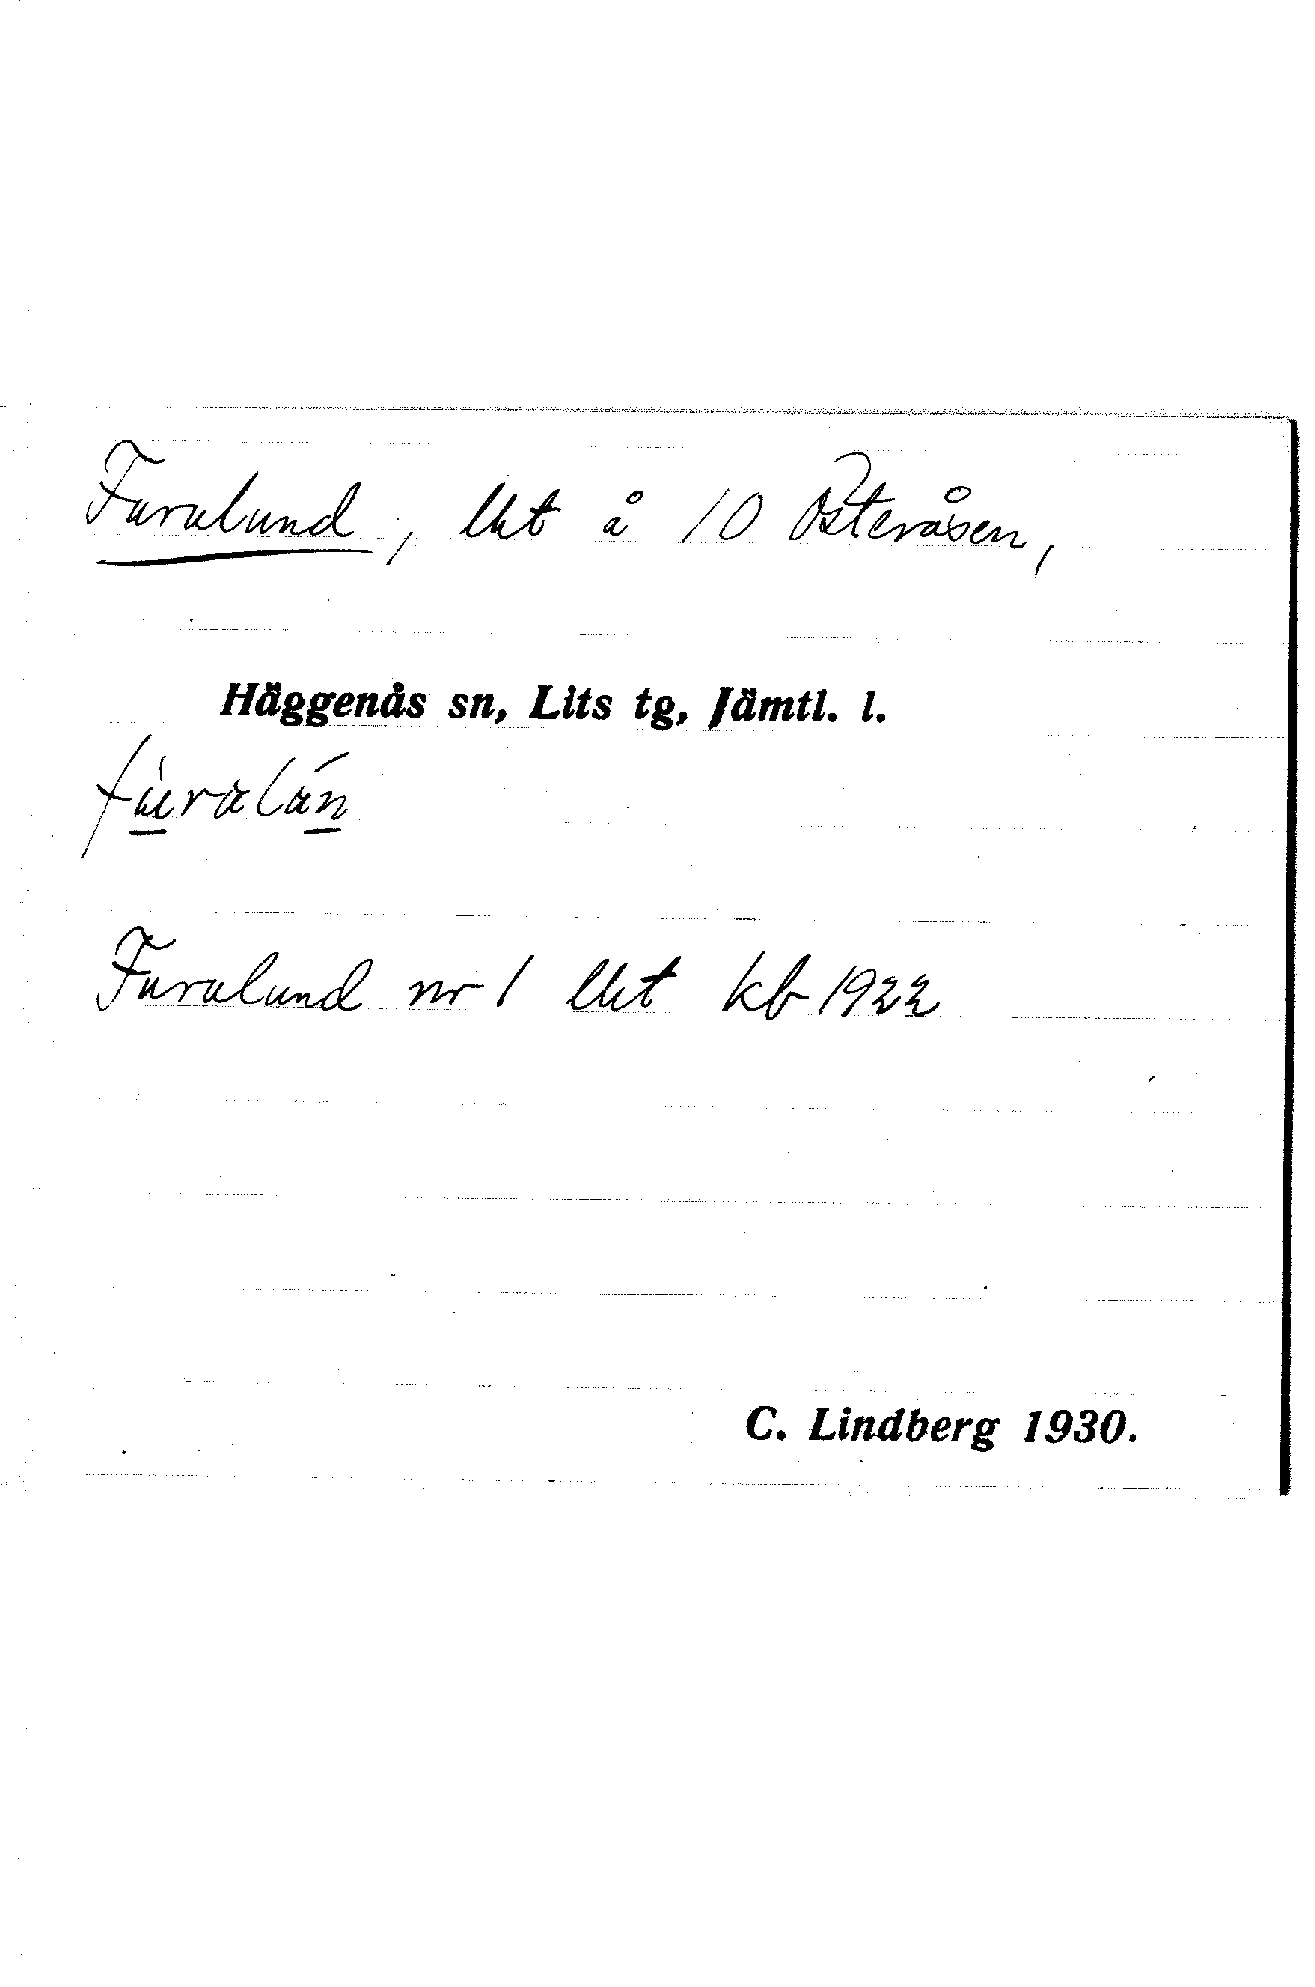 Furulund, lht å 10 Österåsen,
Häggenås sn, Lits tg, Jämtl. l.
Furulund nr 1 lht kb 1922
C. Lindberg 1930.